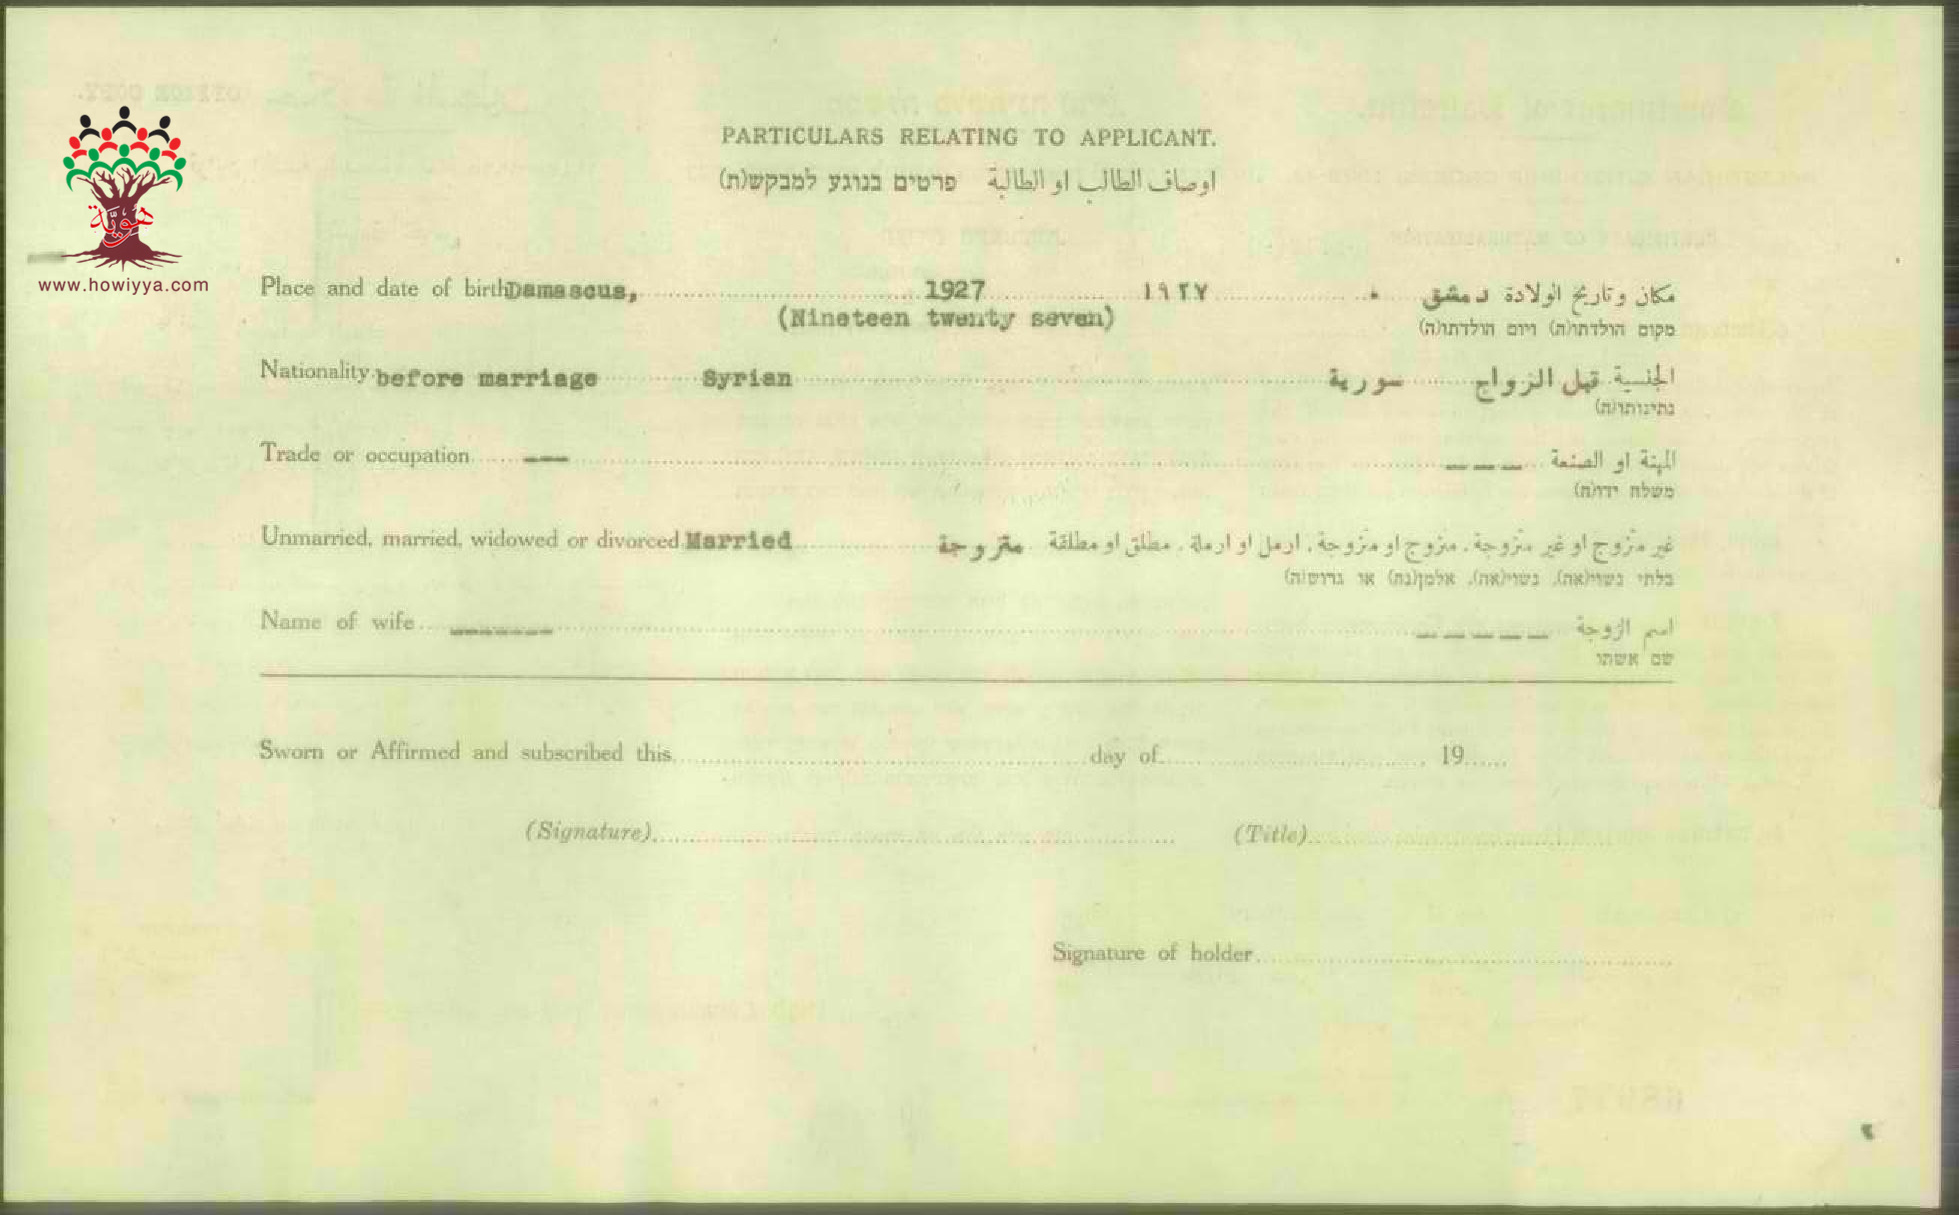 PARTICULARS RELATING TO APPLICANT.
اوصاف الطالب او الطالبة פרטים בנוגע למבקש(ת)
هُويّة
www.howiyya.com
Place and date of birth Damascus, 1927 ١٩٢٧ مكان وتاريخ الولادة دمشق
(Nineteen twenty seven)
מקום הולדתו(ה) ויום הולדתו(ה)
Nationality before marriage Syrian الجنسية قبل الزواج سورية
נתינותו(ה)
Trade or occupation --- المهنة او الصنعة ---
משלח ידו(ה)
Unmarried, married, widowed or divorced Married غير متزوج او غير متزوجة، متزوج او متزوجة، ارمل او ارملة، مطلق او مطلقة متزوجة
בלתי נשוי(אה), נשוי(אה), אלמן(נה) או גרוש(ה)
Name of wife ------- اسم الزوجة -----
שם אשתו
Sworn or Affirmed and subscribed this day of 19
(Signature) (Title)
Signature of holder